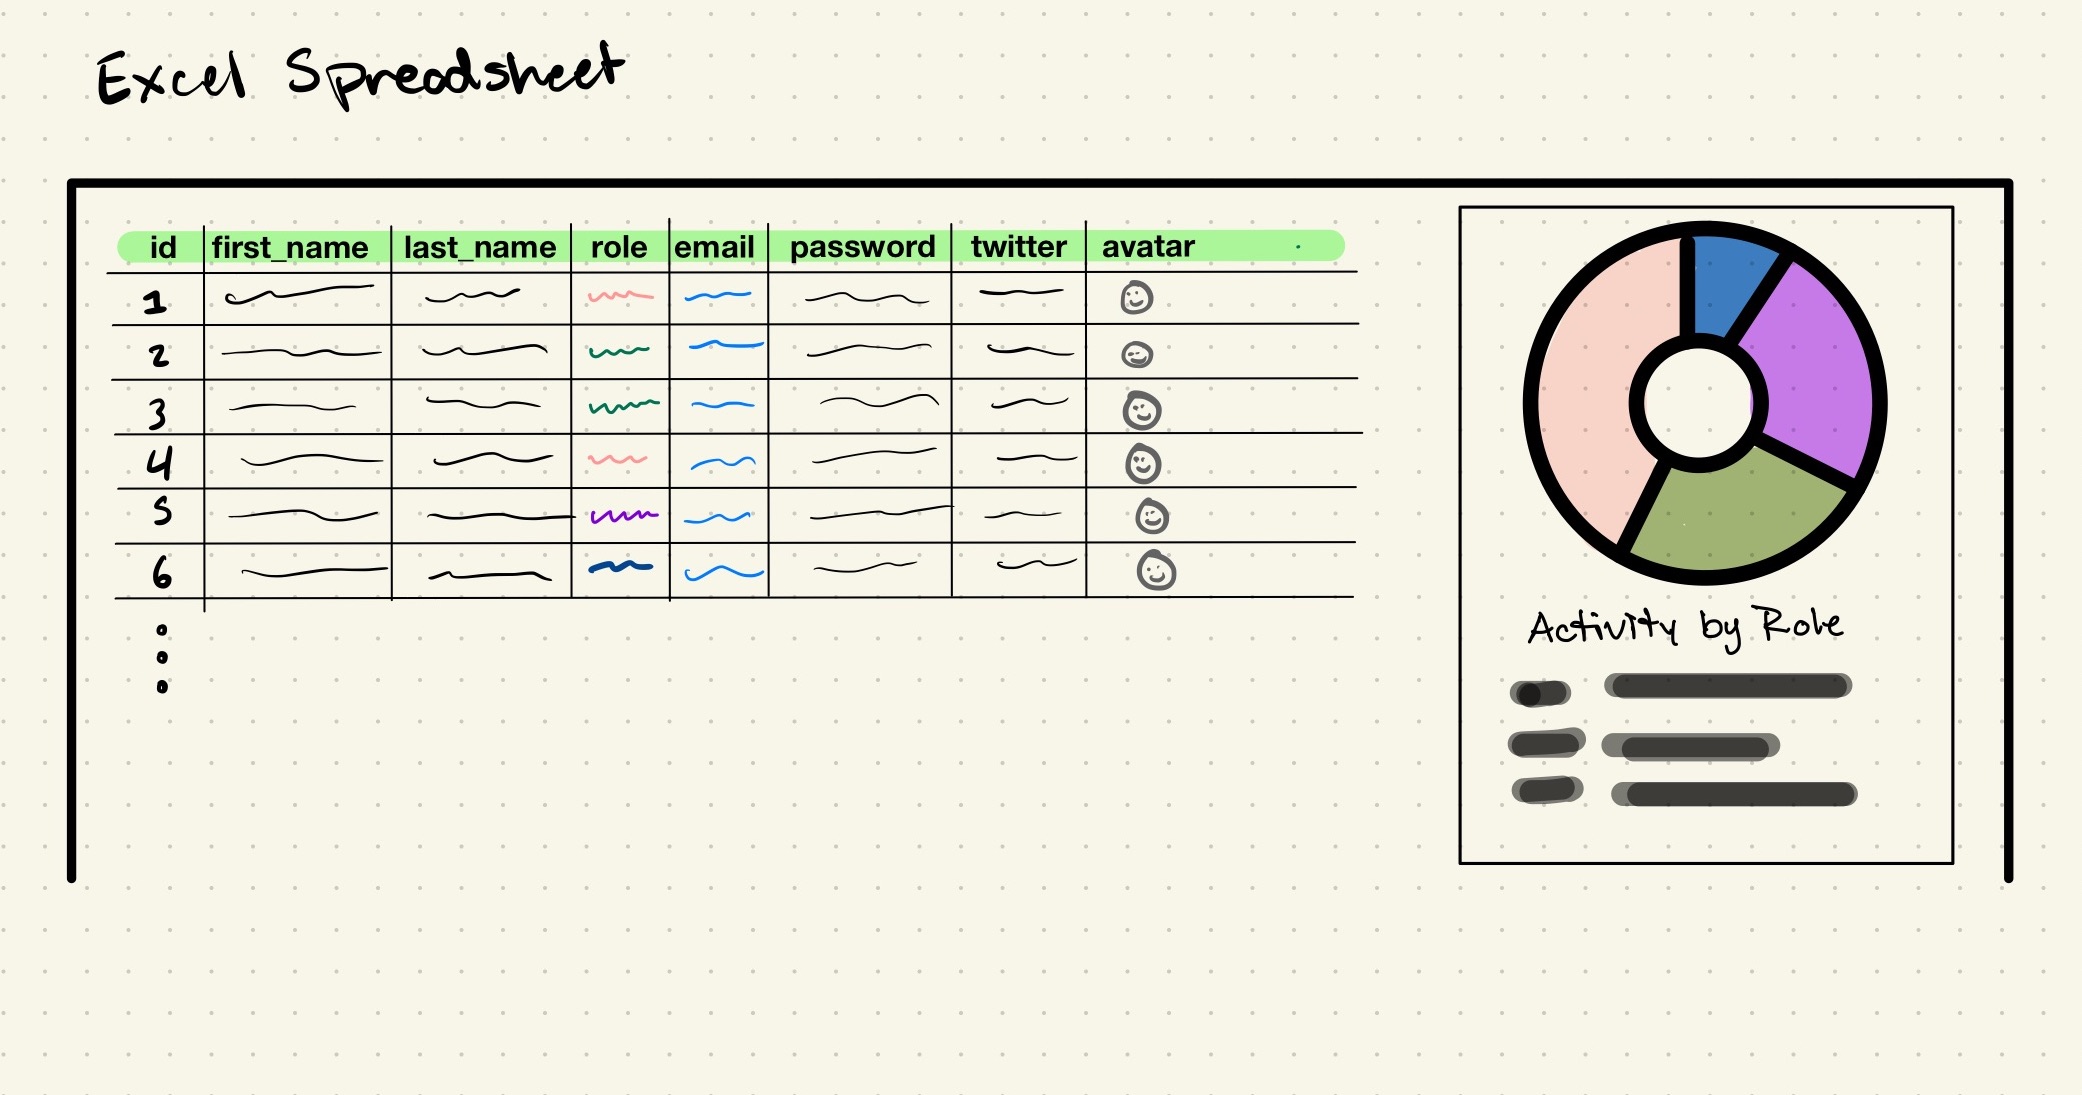 Excel Spreadsheet
id first_name last_name role email password twitter avatar
1
2
3
4
5
6
Activity by Role